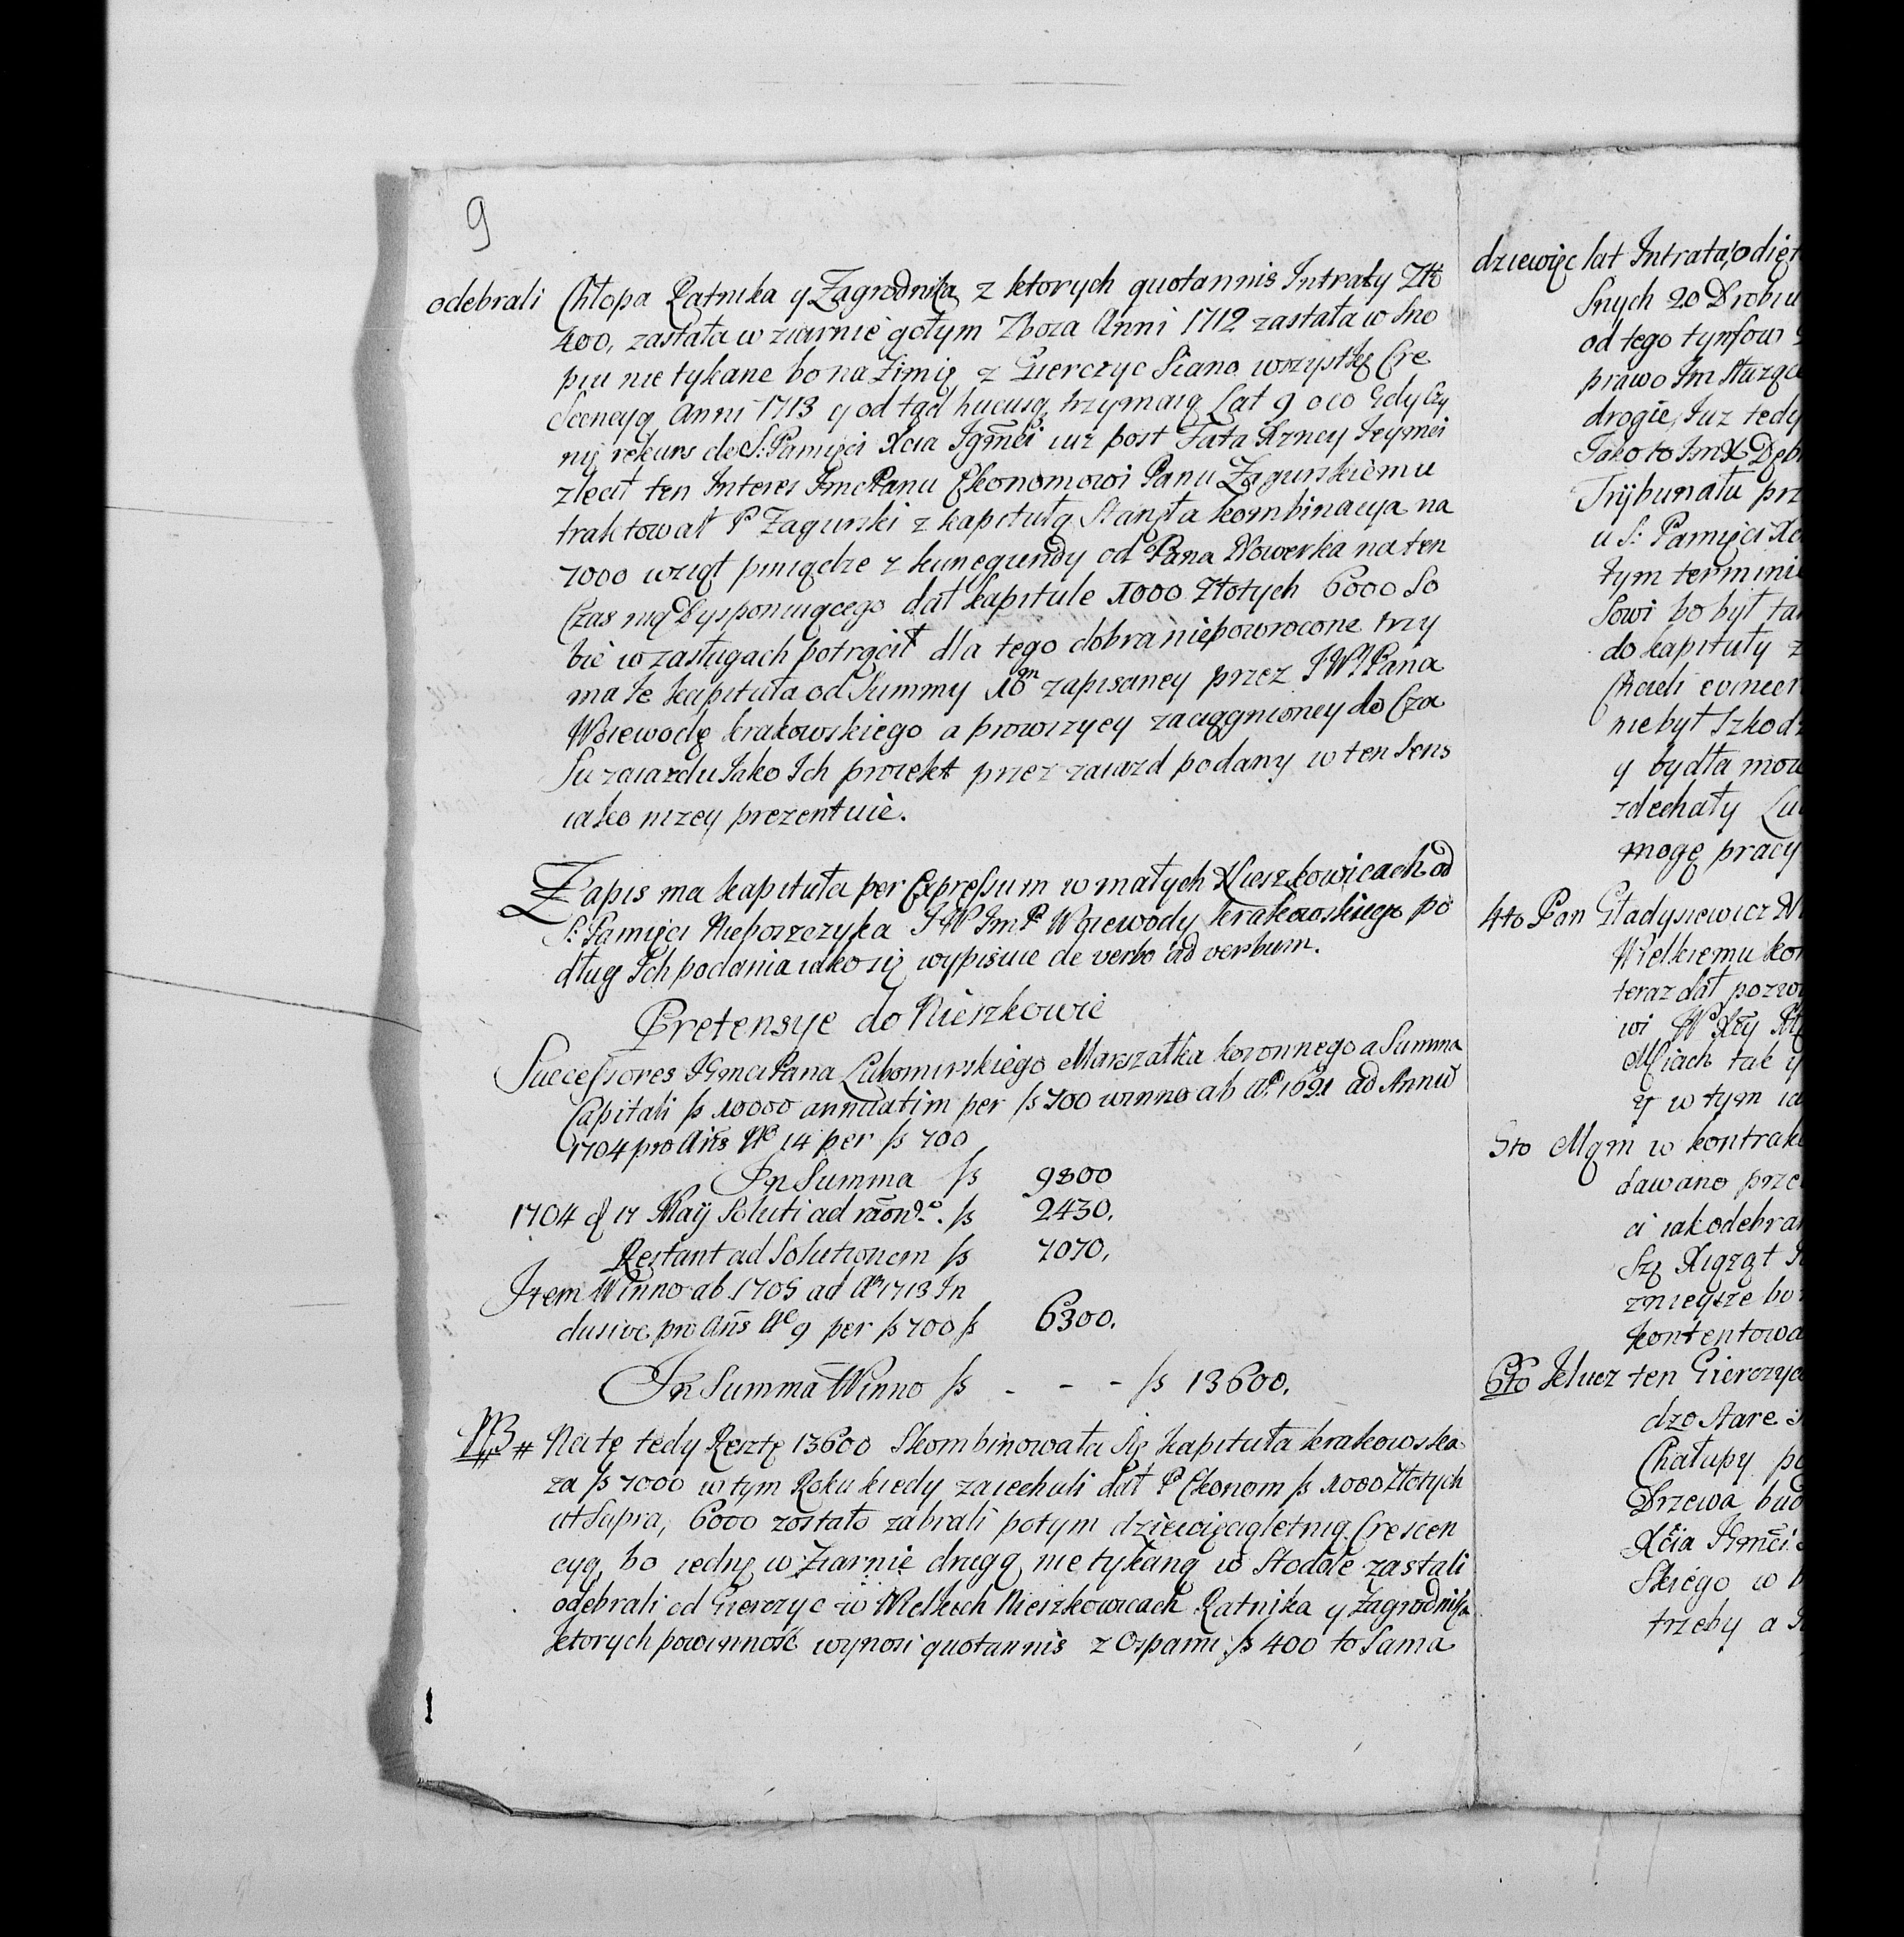 9
odebrali Chłopa Ratnika y Zagrodnika z ktorych quotannis Intraty Złł
400, zastała w ziarnie gołym Zboza Anni 1712 zastała w Sno
piu nie tykane bo na Zimię z Gierczyc Siano wszystkę Cre
Scencyą Anni 1713 y od tąd hucusq trzymaią Lat 9 oco Gdy Czy
nię rekurs do S: Pamięci Xcia Jgmci iuz post Fata
zlecił ten Interes ImcPanu Ekonomowi Panu Zagurskiemu
traktował P Zagurski z kapitułą Stanęła kombinacya na
7000 wziął piniądze z kunegundy od Pana Nowerka na ten
Czas nią Dysponuiącego dał kapitule 1000 Złotych 6000 So
bie w zasługach potrącił dla tego dobra niepowrocone trzy
ma Je kapituła od Summy 10m zapisaney przez J W Pana
Woiewodę krakowskiego a prowizyey zaciągnioney do Cza
Su zaiazdu Jako Ich proiekt przez zaiazd podany w ten Sens
iako nizey prezentuie.
Zapis ma kapituła per Expressum w małych Nieszkowicach od
S: Pamięci Nieboszczyka J W Jm P Woiewody krakowskiego po
dług Ich podania iako się wypisuie de verbo ad verbum.
Pretensye do Nieszkowic
Successores JgmciPana Lubomirskiego Marszałka koronnego a Summa
Capitali fs 10000 annuatim per fs 700 winno ab Ao 1691 ad Annū
1704 pro Anīs No 14 per fs 700
In Summa fs 9800
1704 d 17 Maÿ Soluti ad raōn. fs 2430.
Restant ad Solutionem fs 7070,
Item Winno ab 1705 ad An 1713 In
clusive pro Anīs No 9 per fs 700 fs 6300.
In Summa Winno fs - - - fs 13600.
NB # Na tę tedy Resztę 13600 Skombinowała Się kapituła krakowska
za fs 7000 w tym Roku kiedy zaiechali dał P Ekonom fs 1000 Złotych
ut Supra, 6000 zostało zabrali potym dziewięciąletnią Crescen
cyą, bo iednę w Ziarnie drugą nie tykaną w Stodole zastali
odebrali od Gierczyc w Wielkich Nieszkowicach Ratnika y Zagrodnika
ktorych powinność wynosi quotannis z Ospami fs 400 to Sama
dziewięc lat Intrata, odięt
Snych 20 Drobiu
od tego tynfow
prawo Im Słuząc
drogie, Iuz tedy
Jako to ImX Dęb
Trÿbunału prz
u S: Pamięci Xc
tym termini
Sowi bo był ta
do kapituły z
Chcieli
nie był Szkodz
y bydła mow
zdechały Lu
mogę pracy
4to Pan Gładysiewicz
Wielkiemu kon
teraz dał pozwo
wi
Mſciach tak y
y w tym ia
5to Mąm w kontrak
dawano prze
ci iak odebra
Są Xiąząt
znieysze bo
kontentowa
6to Klucz ten Gierczyc
dzo Stare
Chałupy po
Drzewa bud
Xcia Jgmci
Skiego w
trzeby a